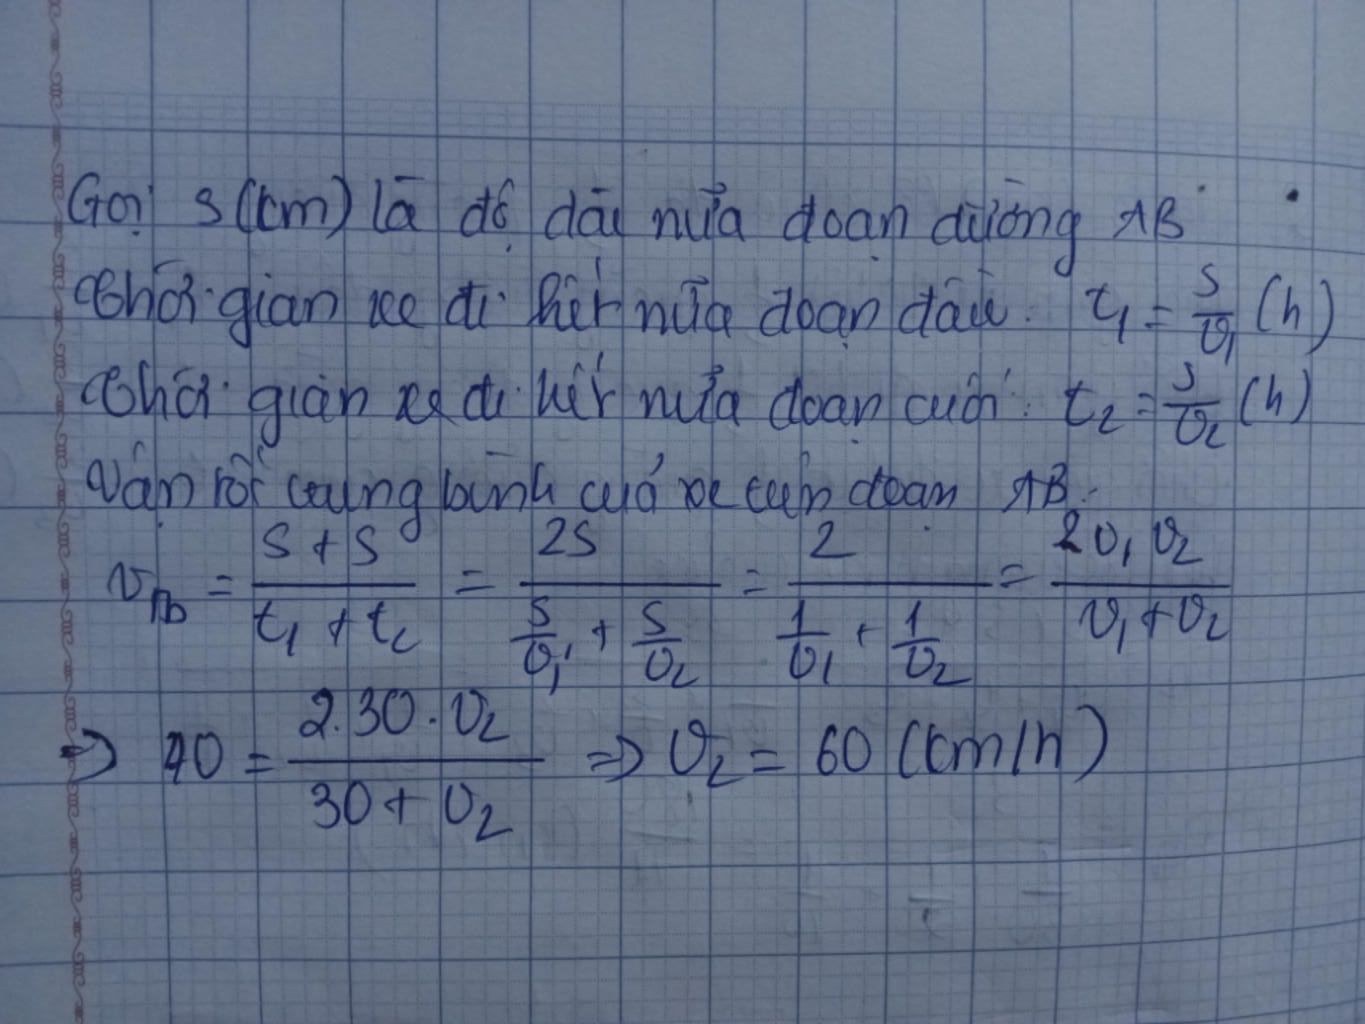 Gọi s (km) là độ dài nửa đoạn đường AB
Thời gian xe đi hết nửa đoạn đầu: t₁ = s/v₁ (h)
Thời gian xe đi hết nửa đoạn cuối: t₂ = s/v₂ (h)
Vận tốc trung bình của xe trên đoạn AB:
v_AB = (s + s)/(t₁ + t₂) = 2s/(s/v₁ + s/v₂) = 2/(1/v₁ + 1/v₂) = 2v₁v₂/(v₁ + v₂)
⇒ 40 = (2.30.v₂)/(30 + v₂) ⇒ v₂ = 60 (km/h)